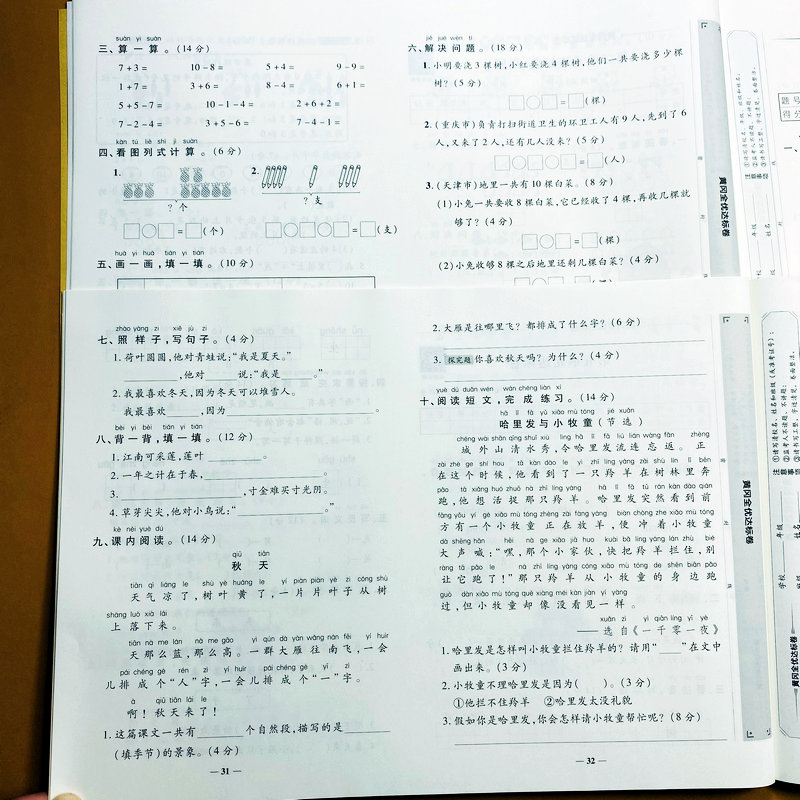 suàn yi suàn
三、算一算。(14分)
7+3= 10-8= 5+4= 9-9=
1+7= 3+6= 8-4= 6+1=
5+5-7= 10-1-4= 2+6+2=
7-2-4= 3+5-6= 7-4-1=
kàn tú liè shì jì suàn
四、看图列式计算。(6分)
1. 2.
?个 ?支
□○□=□(个) □○□○□=□(支)
huà yi huà tián yi tián
五、画一画,填一填。(10分)
jiě jué wèn tí
六、解决问题。(18分)
1.小明要浇3棵树,小红要浇4棵树,他们一共要浇多少棵
树?(5分)
□○□=□(棵)
2.(重庆市)负责打扫街道卫生的环卫工人有9人,先到了6
人,又来了2人,还有几人没来?(5分)
□○□○□=□(人)
3.(天津市)地里一共有10棵白菜。(8分)
(1)小兔一共要收8棵白菜,它已经收了4棵,再收几棵就
够了?(4分)
□○□=□(棵)
(2)小兔收够8棵之后地里还剩几棵白菜?(4分)
黄冈全优达标卷
zhào yàng zi xiě jù zi
七、照样子,写句子。(4分)
1.荷叶圆圆,他对青蛙说:“我是夏天。”
,他对 说:“我是 。”
2.我最喜欢冬天,因为冬天可以堆雪人。
我最喜欢 ,因为 。
bèi yi bèi tián yi tián
八、背一背,填一填。(12分)
1.江南可采莲,莲叶 。
2.一年之计在于春, 。
3. ,寸金难买寸光阴。
4.草芽尖尖,他对小鸟说:“ 。”
kè nèi yuè dú
九、课内阅读。(14分)
qiū tiān
秋天
tiān qì liáng le shù yè huáng le yí piàn piàn yè zi cóng shù
天气凉了,树叶黄了,一片片叶子从树
shàng luò xià lái
上落下来。
tiān nà me lán nà me gāo yì qún dà yàn wǎng nán fēi yí huìr
天那么蓝,那么高。一群大雁往南飞,一会
pái chéng gè rén zì yí huìr pái chéng gè yī zì
儿排成个“人”字,一会儿排成个“一”字。
à qiū tiān lái le
啊!秋天来了!
1.这篇课文一共有 个自然段,描写的是
(填季节)的景象。(4分)
—31—
2.大雁是往哪里飞?都排成了什么字?(6分)
3.探究题 你喜欢秋天吗?为什么?(4分)
yuè dú duǎn wén wán chéng liàn xí
十、阅读短文,完成练习。(14分)
hā lǐ fā yǔ xiǎo mù tóng jié xuǎn
哈里发与小牧童(节选)
chéng wài shān qīng shuǐ xiù lìng hā lǐ fā liú lián wàng fǎn zhèng
城外山清水秀,令哈里发流连忘返。正
zài zhè ge shí hou tā kàn dào le yì zhī líng yáng zài shù lín lǐ bēn
在这个时候,他看到了一只羚羊在树林里奔
pǎo tā xiǎng huó zhuō nà zhī líng yáng hā lǐ fā tū rán kàn dào qián
跑,他想活捉那只羚羊。哈里发突然看到前
fāng yǒu yí gè xiǎo mù tóng zhèng zài fàng yáng biàn chòng zhe xiǎo mù tóng
方有一个小牧童正在放羊,便冲着小牧童
dà shēng hǎn hēi nà ge xiǎo jiā huo kuài bǎ líng yáng lán zhù bié
大声喊:“嘿,那个小家伙,快把羚羊拦住,别
ràng tā pǎo le nà zhī líng yáng cóng xiǎo mù tóng de shēn biān pǎo
让它跑了!”那只羚羊从小牧童的身边跑
guò dàn xiǎo mù tóng què xiàng méi kàn jiàn yí yàng
过,但小牧童却像没看见一样。
xuǎn zì yì qiān líng yí yè
——选自《一千零一夜》
1.哈里发是怎样叫小牧童拦住羚羊的?请用“ ”在文中
画出来。(3分)
2.小牧童不理哈里发是因为( )。(3分)
①他拦不住羚羊 ②哈里发太没礼貌
3.假如你是哈里发,你会怎样请小牧童帮忙呢?(8分)
—32—
黄冈全优达标卷
注意事项
学校
年级
姓名
题号
得分